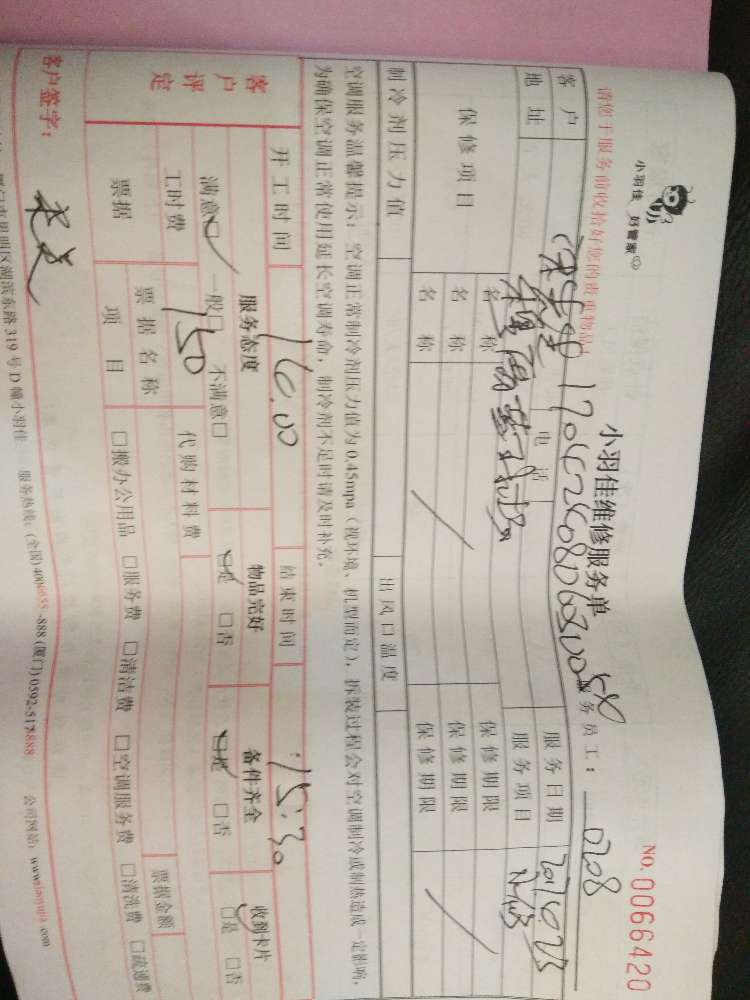 小羽佳 好管家
小羽佳维修服务单
NO. 0066420
请您于服务前收拾好您的贵重物品!
服务员工: 0208
客户
电话
服务日期
地址
服务项目
保修项目
名称
保修期限
名称
保修期限
名称
保修期限
制冷剂压力值
出风口温度
空调服务温馨提示: 空调正常制冷剂压力值为0.45mpa (视环境、机型而定), 拆装过程会对空调制冷或制热造成一定影响,
为确保空调正常使用延长空调寿命, 制冷剂不足时请及时补充。
开工时间
结束时间
15:30
客户评定
服务态度
物品完好
备件齐全
收到卡片
满意□ 一般□ 不满意□
□是 □否
□是 □否
□是 □否
工时费
150
代购材料费
票据
票据名称
票据金额
项目
□搬办公用品 □服务费 □清洁费 □空调服务费 □清洗费 □疏通费
客户签字:
湖滨东路319号D幢小羽佳 服务热线: (全国) 888 (厦门) 公司网站: